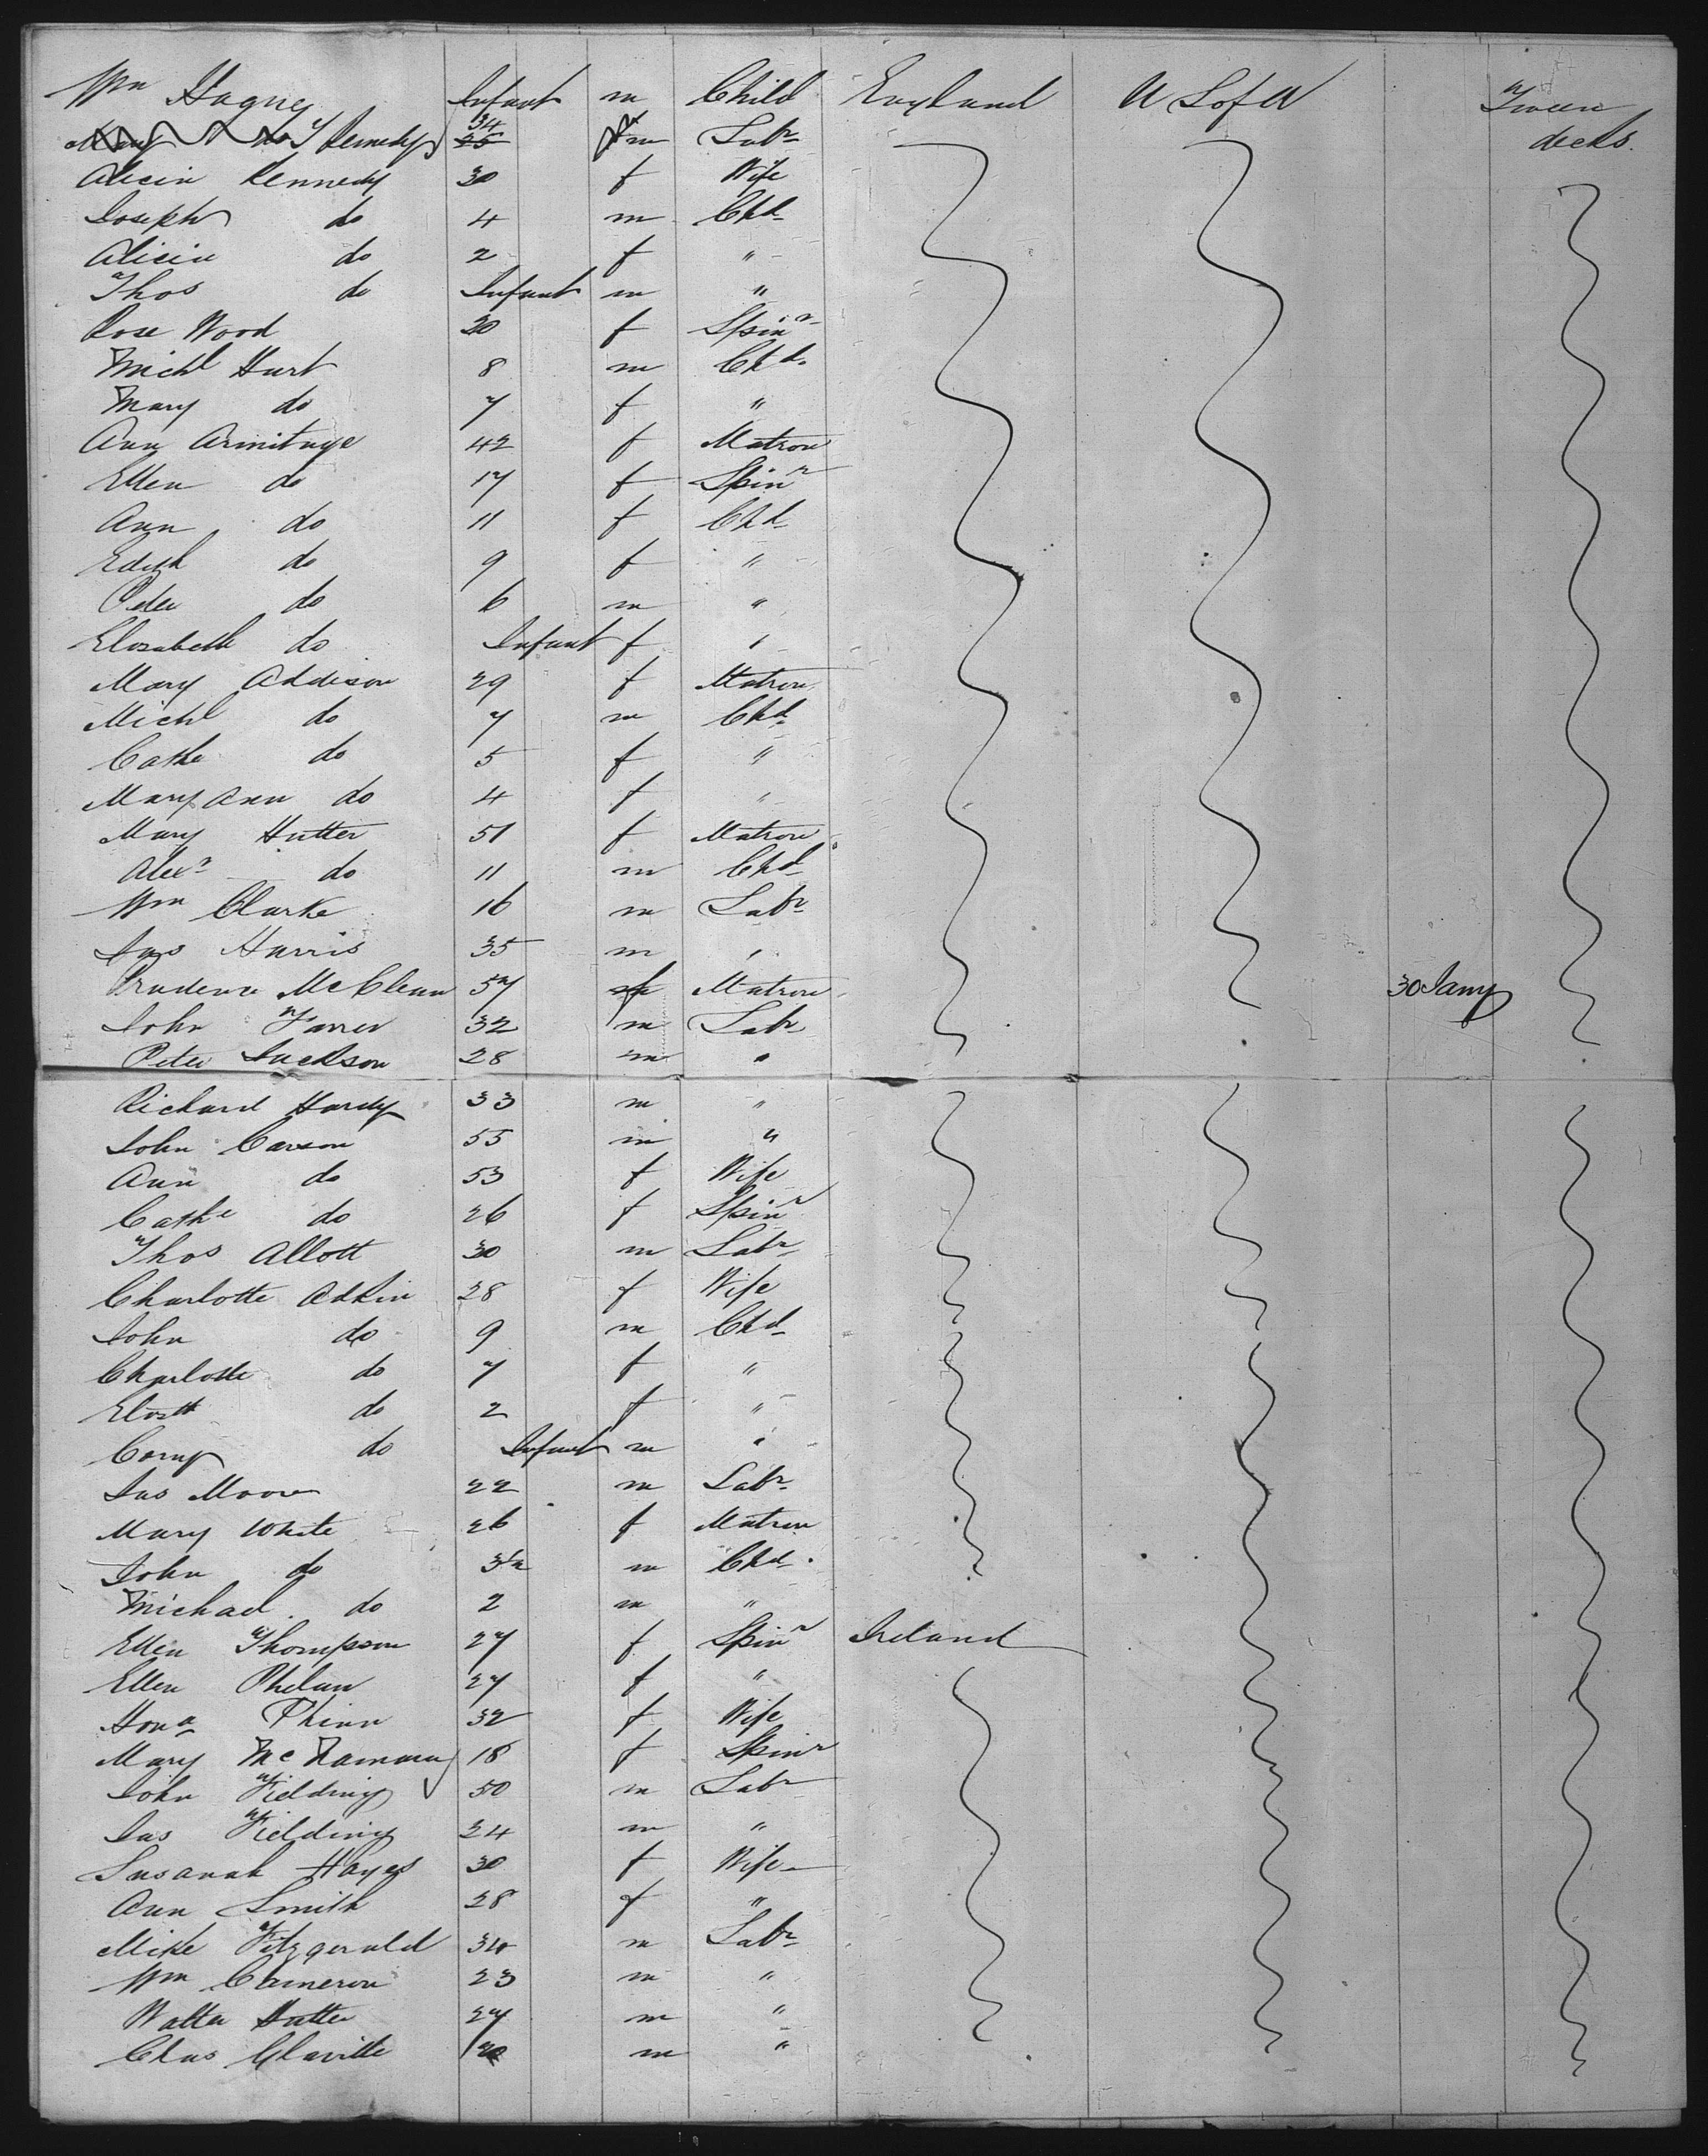 Wm Hagney Infant m Child England U S of A Tween decks.
T Kennedy 34 m Labr
Alicia Kennedy 30 f Wife
Joseph do 4 m Chd
Alicia do 2 f "
Thos do Infant m "
Rose Wood 20 f Spinr
Michl Hurt 8 m Chd.
Mary do 7 f "
Ann Armitage 42 f Matron
Ellen do 17 f Spinr
Ann do 11 f Chd
Edith do 9 f "
Peter do 6 m "
Elizabeth do Infant f "
Mary Addison 29 f Matron
Michl do 7 m Chd
Cathe do 5 f "
Mary Ann do 4 f "
Mary Hutter 51 f Matron
Alexr do 11 m Chd
Wm Clarke 16 m Labr
Jas Harris 35 m "
Prudence McClean 57 f Matron 30 Jany
John Farrer 32 m Labr
Peter Jackson 28 m "
Richard Hardy 33 m "
John Carson 55 m "
Ann do 53 f Wife
Cathe do 26 f Spinr
Thos Allott 30 m Labr
Charlotte Adkin 28 f Wife
John do 9 m Chd
Charlotte do 7 f "
Elizth do 2 f "
do Infant m "
Jas Moore 22 m Labr
Mary White 26 f Matron
John do 3 m Chd.
Michael do 2 m "
Ellen Thompson 27 f Spinr Ireland
Ellen Phelan 27 f "
Hona Phinn 32 f Wife
Mary McNamara 18 f Spinr
John Fielding 50 m Labr
Jas Fielding 24 m "
Susanah Hayes 30 f Wife
Ann Smith 28 f "
Mike Fitzgerald 34 m Labr
Wm Cameron 23 m "
Walter Hutter 27 m "
Chas Claville m "